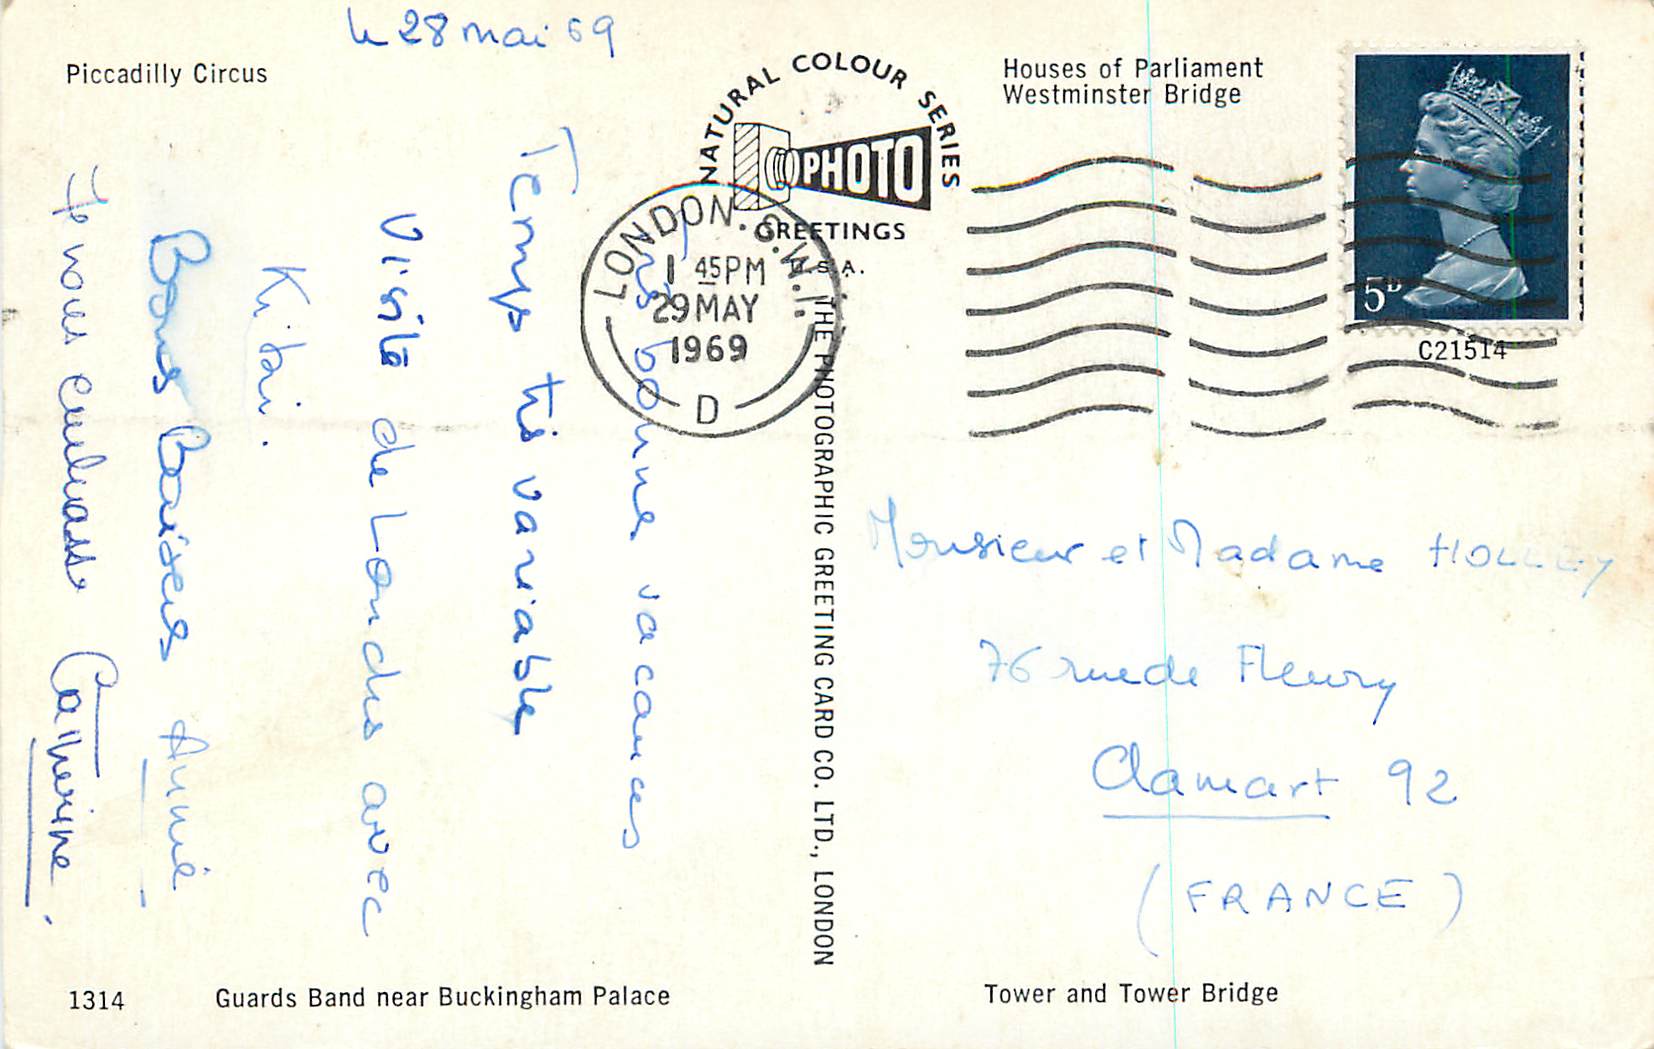 le 28 mai 69
Piccadilly Circus
NATURAL COLOUR SERIES
PHOTO
GREETINGS
U.S.A.
Houses of Parliament
Westminster Bridge
5D
C21514
LONDON. S.W.1.
1 45PM
29 MAY
1969
D
Très bonnes vacances
Temps très variable
Visite de Londres avec
Kiki.
Bons Baisers Annie
Je vous embrasse Catherine.
THE PHOTOGRAPHIC GREETING CARD CO. LTD., LONDON
Monsieur et Madame HOLLEY
76 rue de Fleury
Clamart 92
(FRANCE)
1314
Guards Band near Buckingham Palace
Tower and Tower Bridge